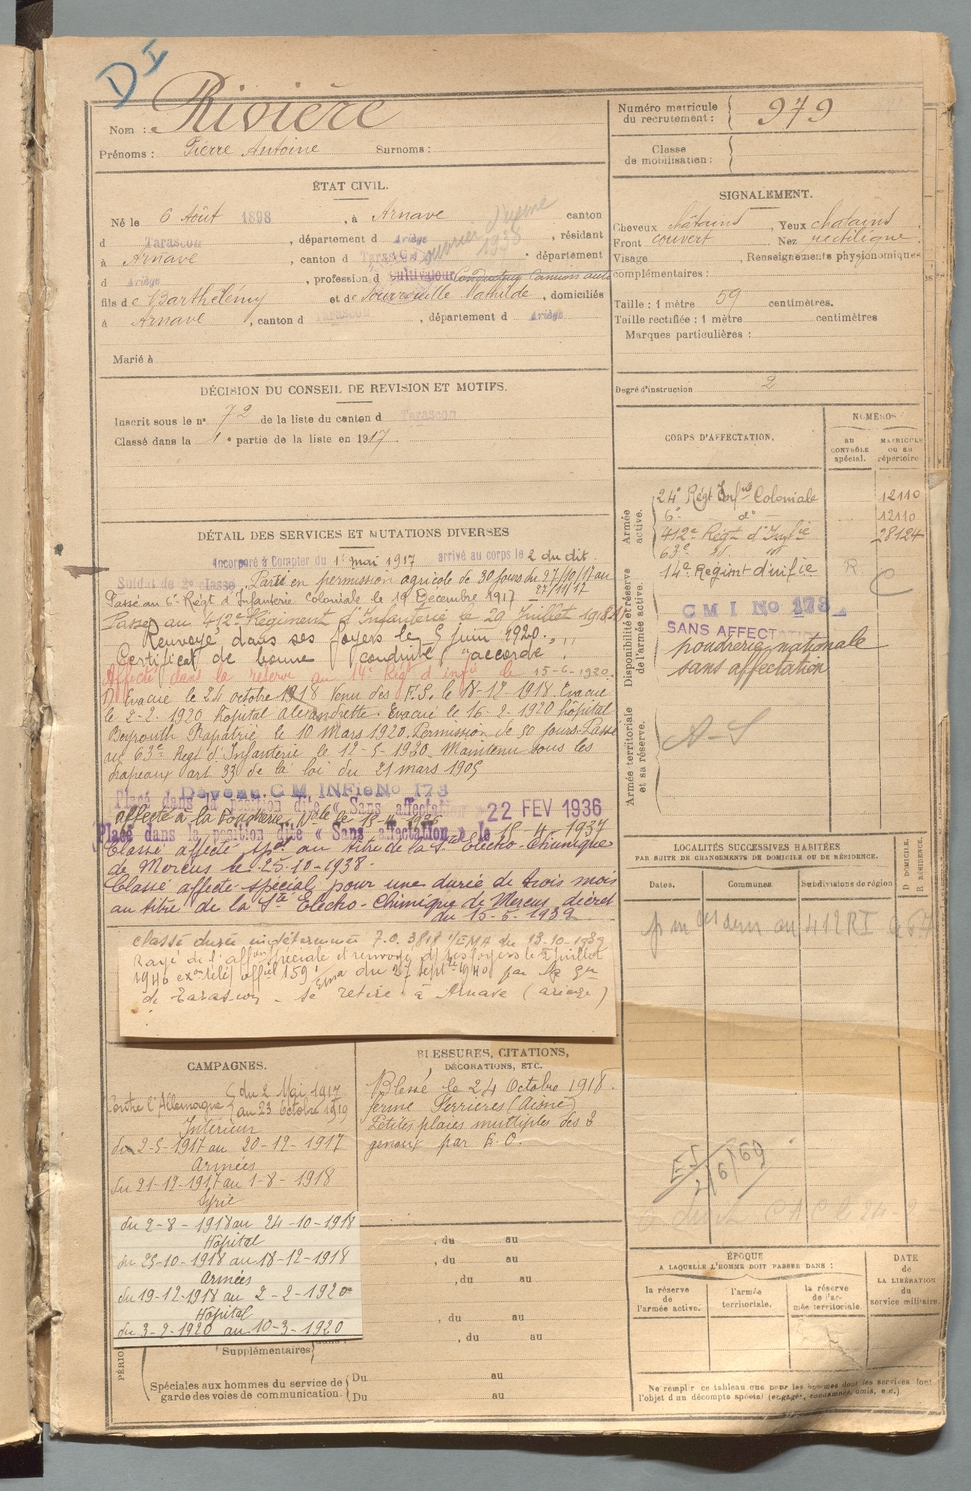 DI
Nom : Rivière
Prénoms : Pierre Antoine Surnoms :
Numéro matricule du recrutement : 979
Classe de mobilisation :
ÉTAT CIVIL.
Né le 6 Août 1898, à Arnave canton
d Tarascon, département d Ariège, résidant
à Arnave, canton d Tarascon, département
d Ariège, profession d cultivateur
fils de Barthélémy et de Mathilde, domiciliés
à Arnave, canton d Tarascon, département d Ariège
Marié à
SIGNALEMENT.
Cheveux châtains, Yeux châtains
Front couvert Nez rectiligne
Visage Renseignements physionomiques
complémentaires :
Taille : 1 mètre 59 centimètres.
Taille rectifiée : 1 mètre centimètres
Marques particulières :
Degré d'instruction 2
DÉCISION DU CONSEIL DE REVISION ET MOTIFS.
Inscrit sous le n° 72 de la liste du canton d Tarascon
Classé dans la 1e partie de la liste en 1917.
CORPS D'AFFECTATION.
NUMÉROS
AU CONTRÔLE spécial.
MATRICULE OU AU répertoire
Armée active.
24e Régt Infrie Coloniale 12110
6e do 12110
412e Régt d'Infie 28124
63e id. id
Disponibilité et réserve de l'armée active.
14e Régiment d'infie R
C M I No 173
SANS AFFECTATION
poudrerie nationale
sans affectation
Armée territoriale et sa réserve.
A-S
DÉTAIL DES SERVICES ET MUTATIONS DIVERSES
Incorporé à Compter du 1er mai 1917 arrivé au corps le 2 du dit.
Soldat de 2e classe. Parti en permission agricole de 30 jours du 27/10/17 au 27/11/17
Passé au 6e Régt d'Infanterie Coloniale le 19 Décembre 1917
Passé au 412e Régiment d'Infanterie le 29 Juillet 1918
Renvoyé dans ses foyers le 5 juin 1920.
Certificat de bonne conduite "accordé"
Affecté dans la réserve au 14e Régt d'infie le 15-6-1920.
Evacué le 24 octobre 1918 Venu des le 18-12-1918. Evacué
le 2-2-1920 hôpital Alexandrette. Evacué le 16-2-1920 hôpital
Beyrouth Rapatrié le 10 Mars 1920. Permission de 50 jours. Passé
au 63e Régt d'Infanterie le 12-5-1920. Maintenu sous les
drapeaux art 33 de la loi du 21 mars 1905
Devenu C M INFie No 173
Placé dans la position dite « Sans affectation » 22 FEV 1936
Affecté à la Poudrerie Nle le
Placé dans la position dite « Sans affectation » le 15-4-1937
Classé affecté spal au titre de la Sté Electro-Chimique
de Mercus le 25-10-1938
Classé affecté spécial pour une durée de trois mois
au titre de la Sté Electro-Chimique de Mercus, décret
du 15-5-1939
Classé durée indéterminée 3818 /EMA du 13-10-1939
Rayé de l'affon spéciale et renvoyé ds ses foyers le juillet
1940 du 27 sept 1940 par
de Tarascon - se retire à Arnave (Ariège)
LOCALITÉS SUCCESSIVES HABITÉES
PAR SUITE DE CHANGEMENTS DE DOMICILE OU DE RÉSIDENCE.
Dates. Communes Subdivisions de région D DOMICILE. R RÉSIDENCE.
au 412 RI
CAMPAGNES.
Contre l'Allemagne du 2 Mai 1917 au 23 Octobre 1919
Intérieur
du 2-5-1917 au 20-12-1917
Armées
du 21-12-1917 au 1-8-1918
Syrie
du 2-8-1918 au 24-10-1918
Hôpital
du 25-10-1918 au 18-12-1918
Armées
du 19-12-1918 au 2-2-1920
Hôpital
du 3-2-1920 au 10-3-1920
Supplémentaires
Spéciales aux hommes du service de garde des voies de communication.
Du au
Du au
BLESSURES, CITATIONS,
DÉCORATIONS, ETC.
Blessé le 24 Octobre 1918.
ferme Ferrières (Aisne)
Petites plaies multiples des 2
genoux par E.O.
, du au
, du au
, du au
, du au
, du au
2/6/69
ÉPOQUE
A LAQUELLE L'HOMME DOIT PASSER DANS :
la réserve de l'armée active.
l'armée territoriale.
la réserve de l'armée territoriale.
DATE de LA LIBÉRATION du service militaire.
Ne remplir ce tableau que pour les hommes dont les services font
l'objet d'un décompte spécial (engagés, condamnés, omis, etc.)